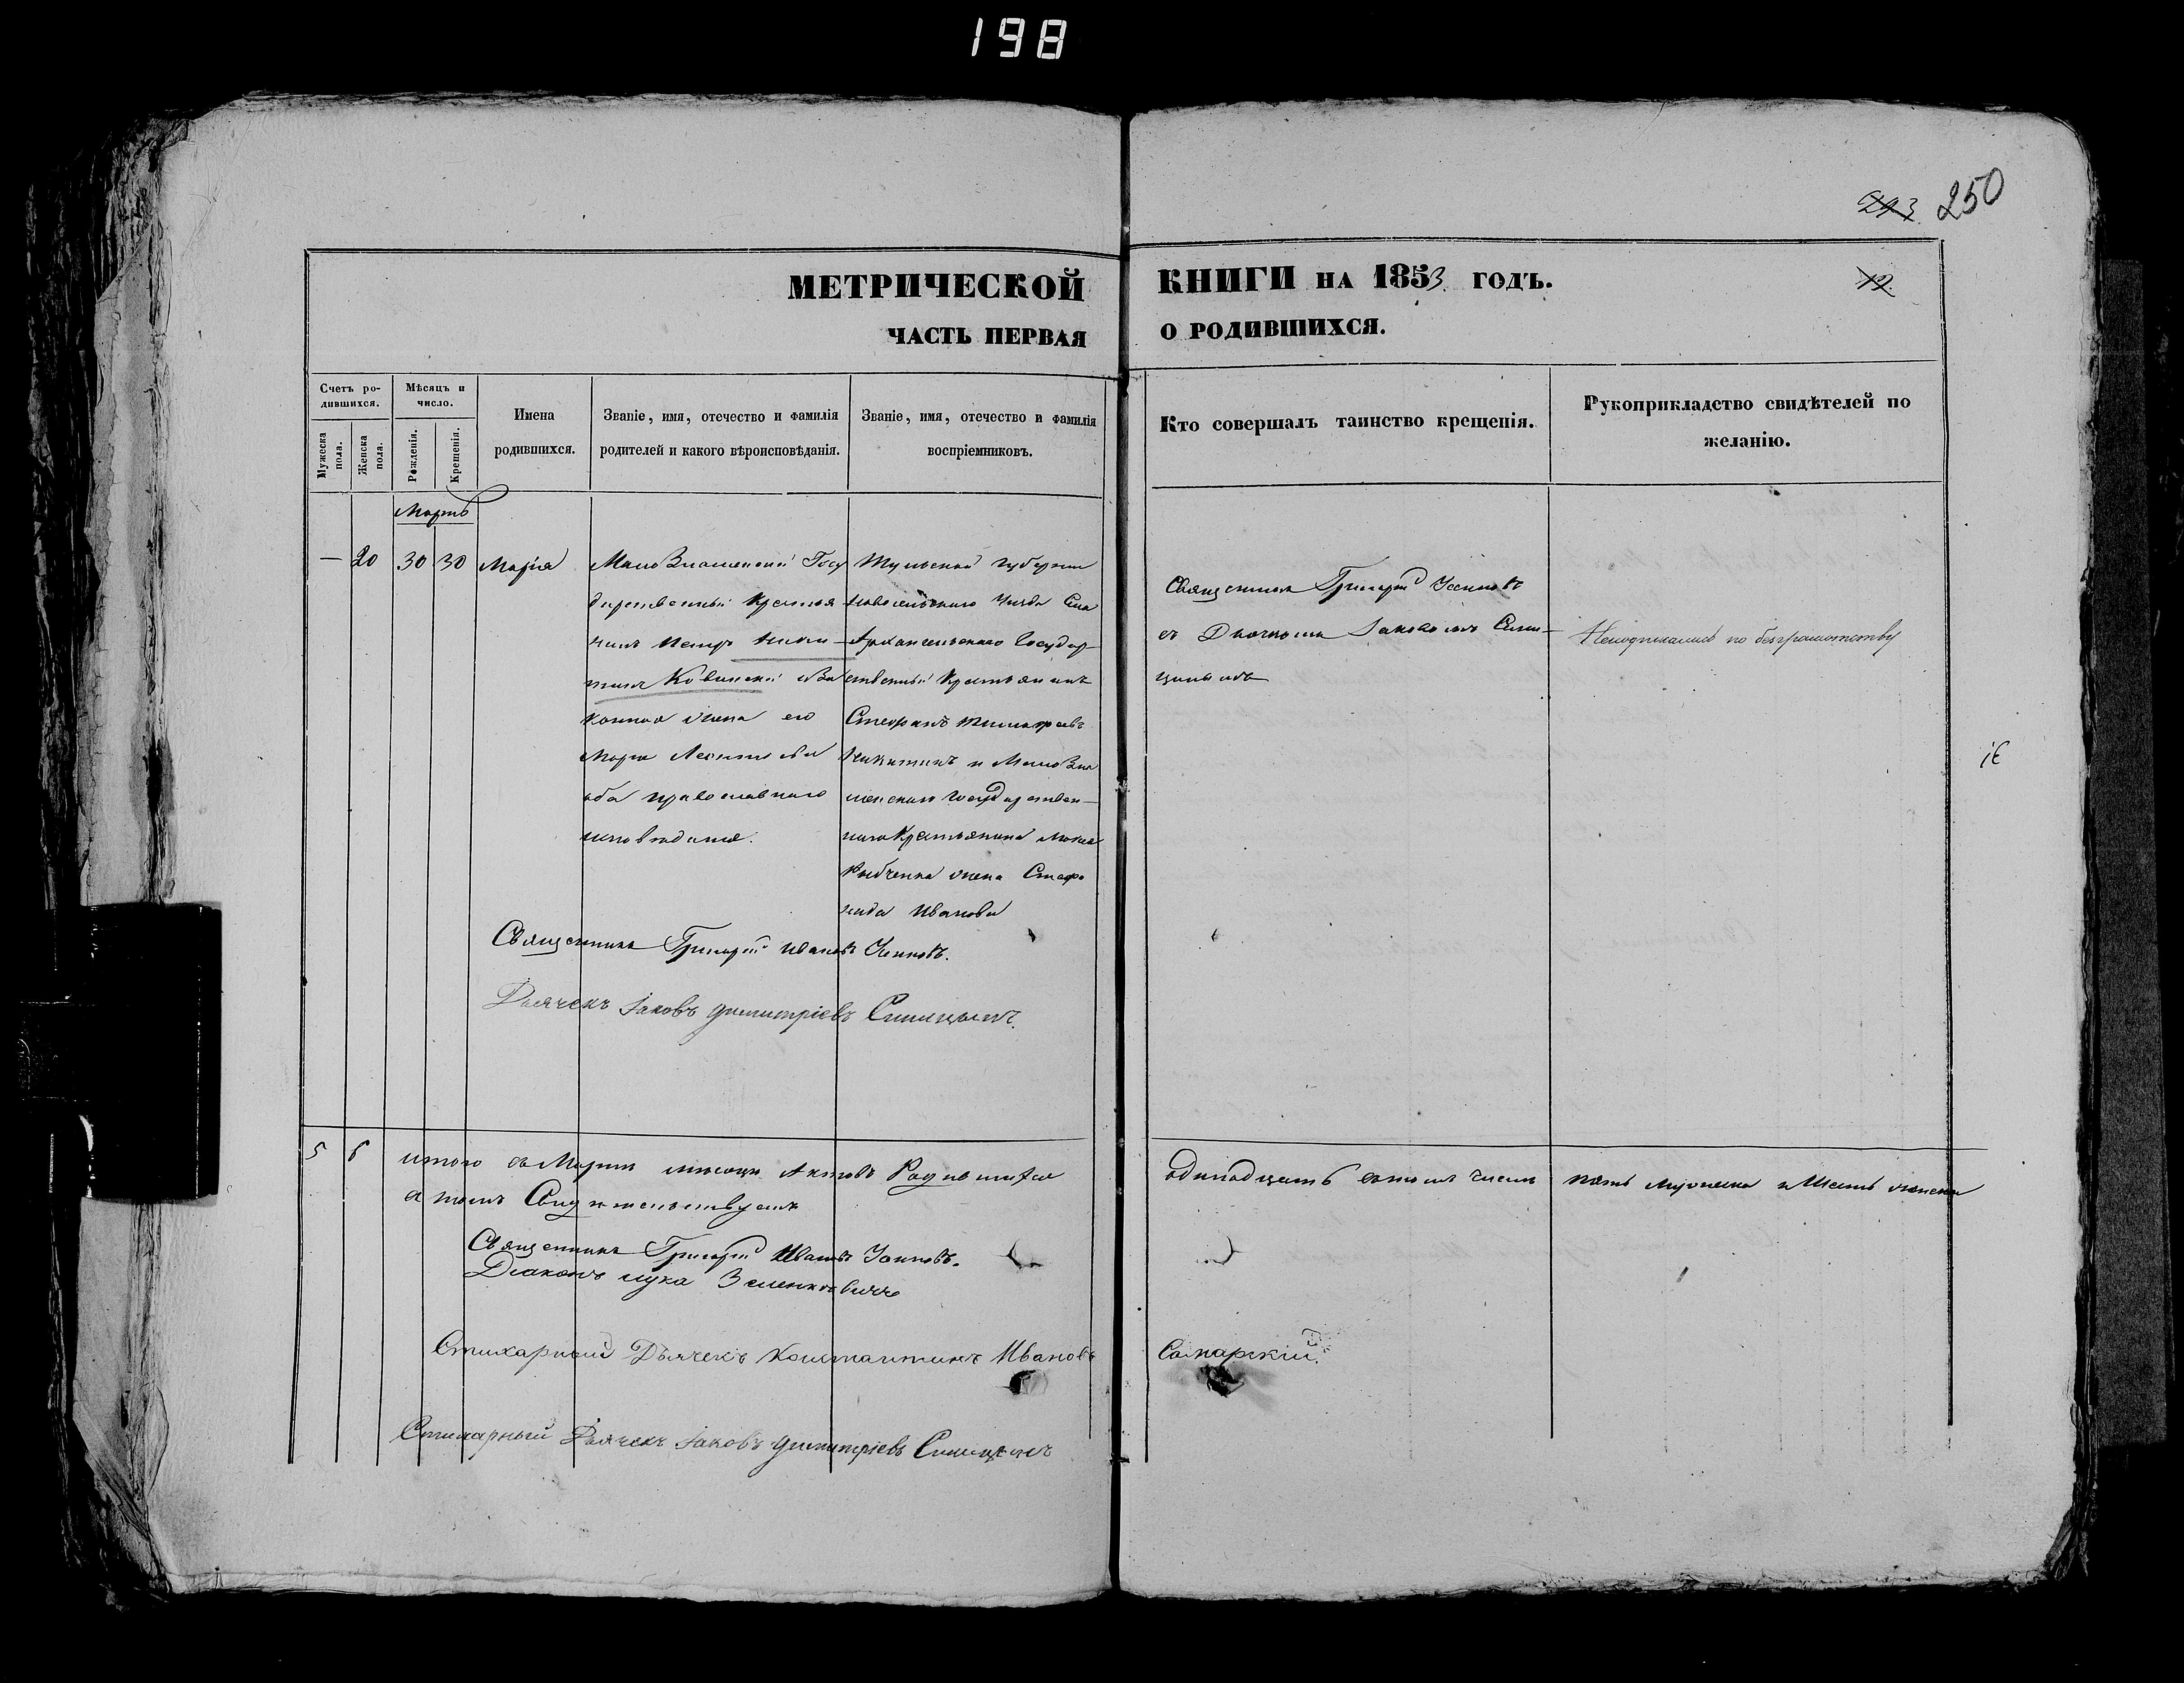 198
243 250
МЕТРИЧЕСКОЙ КНИГИ НА 1853 ГОДЪ.
12
ЧАСТЬ ПЕРВАЯ О РОДИВШИХСЯ.
Счетъ родившихся.
Мужеска пола.
Женска пола.
Мѣсяцъ и число.
Рожденія.
Крещенія.
Имена родившихся.
Званіе, имя, отечество и фамилія родителей и какого вѣроисповѣданія.
Званіе, имя, отечество и фамилія воспріемниковъ.
Кто совершалъ таинство крещенія.
Рукоприкладство свидѣтелей по желанію.
Мартъ
— 20 30 30 Марія
Мало Знаменскій Госу
дарственный Крестья
нинъ Петръ Ники—
тинъ Ковинскій и За
конная жена его
Марія Леонтьева
оба православнаго
исповѣданія.
Тульской губерніи
Новосильскаго Уѣзда Села
Архангельскаго Государ—
ственный Крестьянинъ
Стефанъ Тимофеевъ
Никитинъ и Мало Зна
менскаго Государствен—
наго Крестьянина
жена Стефа
нида Иванова
Священникъ Григорій
съ Дьячкомъ Іаковомъ Сини—
цынымъ
Неподписались по безграмотству
Священникъ Григорій Ивановъ
Дьячекъ Іаковъ Димитріевъ Синицынъ.
5 6 итого въ Мартѣ мѣсяцѣ Актовъ Родившихся одинадцать въ томъ числѣ пять мужеска и Шесть женска
в томъ Свидѣтельствуемъ
Священникъ Григорій Ивановъ
Діаконъ Лука Зеленкевичъ
Стихарный Дьячекъ Константинъ Ивановъ Самарскій.
Стихарный Дьячекъ Іаковъ Димитріевъ Синицынъ